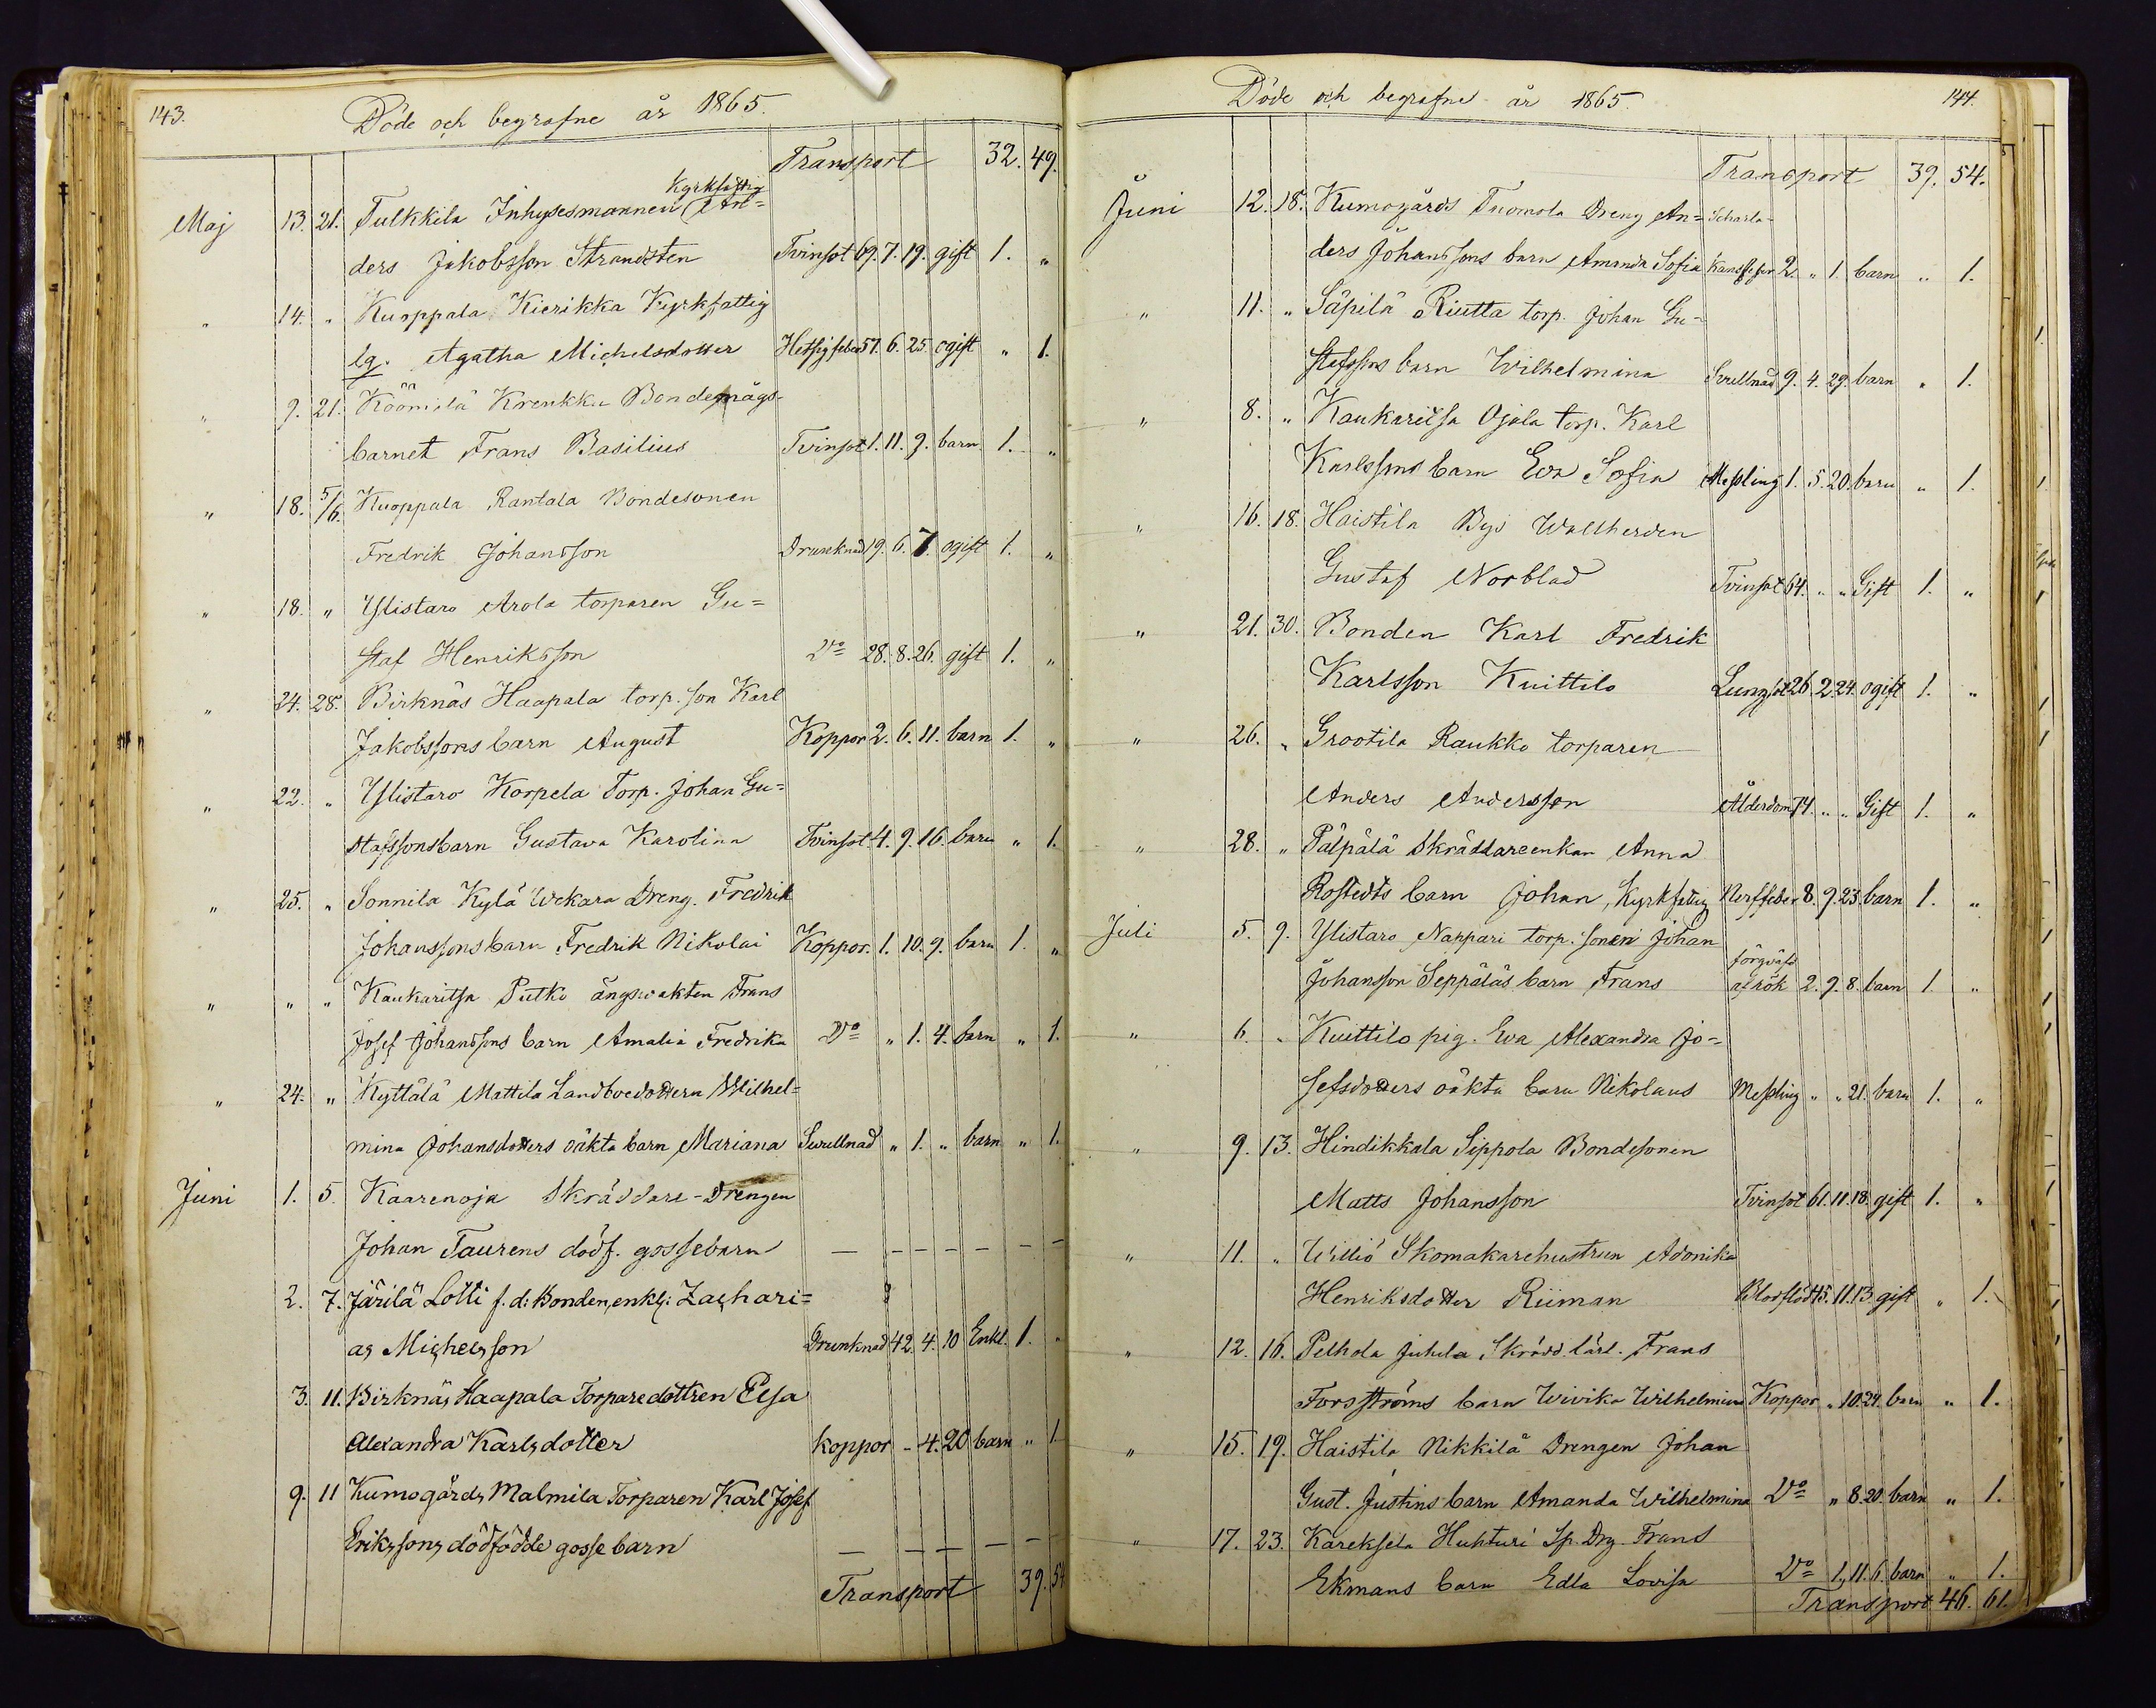 143.
Döde och begrafne år 1865.
Transport 32. 49.
Kyrkfattig
Maj 13. 21. Tulkkila Inhysesmannen An=
ders Jakobsson Strandsten Tvinsot 69. 7. 19. gift 1. "
" 14. " Kuoppala Kierikka Kyrkfattig
lg. Agatha Michelsdotter Hetsig feber 57. 6. 25. ogift " 1.
" 9. 21. Köömilä Krenkku Bondemågs-
barnet Frans Basilius Tvinsot 1. 11. 9. barn 1. "
" 18. 5/6. Kuoppala Rantala Bondesonen
Fredrik Johansson Drunknad 19. 6. 7. ogift 1. "
" 18. " Ylistaro Arola torparen Gu=
staf Henriksson Do 28. 8. 26. gift 1. "
" 24. 28. Birknäs Haapala torp. son Karl
Jakobssons barn August Koppor 2. 6. 11. barn 1. "
" 22. " Ylistaro Korpela Torp. Johan Gu=
stafssons barn Gustava Karolina Tvinsot 4. 9. 16. barn " 1.
" 25. " Sonnila Kylä Wekara Dreng. Fredrik
Johanssons barn Fredrik Nikolai Koppor. 1. 10. 9. barn 1. "
" " " Kaukaritsa Putko ängsvakten Frans
Josef Johanssons barn Amalia Fredrika Do " 1. 4. barn " 1.
" 24. " Kyttälä Mattila Landboedottern Wilhel=
mina Johansdotters oäkta barn Mariana Swullnad " 1. " barn " 1.
Juni 1. 5. Kaarenoja Skräddare-Drengen
Johan Taurens dödf. gossebarn — — — — — — —
2. 7. Järilä Lotti f. d: Bonden, enkl: Zachari=
as Michelsson Drunknad 42. 4. 10 Enkl. 1. "
3. 11. Birknäs Haapala Torparedottren Elsa
Alexandra Karlsdotter koppor - 4. 20 barn " 1
9. 11 Kumogårds Malmila Torparen Karl Josef
Erikssons dödfödde gosse barn — — — — —
Transport 39. 54
Döde och begrafne år 1865.
144.
Transport 39. 54.
Juni 12. 18. Kumogårds Tuomola Dreng An= Scharla-
ders Johanssons barn Amanda Sofia kansfeber 2. " 1. barn " 1.
" 11. " Säpilä Riutta torp. Johan Gu-
stafssons barn Wilhelmina Svullnad 9. 4. 29. barn " 1.
" 8. " Kaukaritsa Ojala torp. Karl
Karlssons barn Eva Sofia Messling 1. 5. 20. barn " 1.
" 16. 18. Haistila Bys Wallherden
Gustaf Norblad Tvinsot 64. " " Gift 1. "
" 21. 30. Bonden Karl Fredrik
Karlsson Kuittilo Lungsot 26. 2. 24. ogift 1. "
" 26. " Grootila Raukko torparen
Anders Andersson Ålderdom 74. " " Gift 1. "
" 28. " Pälpälä Skräddareenkan Anna
Rostedts barn Johan, Kyrkfattig Nerffeber 8. 9. 23. barn 1. "
Juli 5. 9. Ylistaro Nappari torp. sonen Johan
förqväfd
Johansson Seppäläs barn Frans af rök 2. 9. 8. barn 1. "
" 6. " Kuittilo pig. Eva Alexandra Jo=
sefsdotters oäkta barn Nikolaus Messling " " 21. barn 1. "
" 9. 13. Hindikkala Sippola Bondesonen
Matts Johansson Tvinsot 61. 11. 18. gift 1. "
" 11. " Williö Skomakarehustrun Adonika
Henriksdotter Riiman Blorflöd 45. 11. 13. gift " 1.
" 12. 16. Pelhola Juhela Skrädd. lärl. Frans
Forsströms barn Wivika Wilhelmina Koppor " 10. 24. barn " 1.
" 15. 19. Haistila Nikkilä Drengen Johan
Gust. Justins barn Amanda Wilhelmina Do " 8. 20. barn " 1.
" 17. 23. Kareksela Huhturi Sp. Drg. Frans
Ekmans barn Edla Lovisa Do 1. 11. 6. barn " 1.
Transport 46. 61.